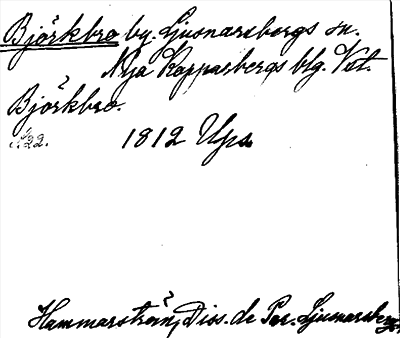 Björkbro by. Ljusnarsbergs sn.
Nya Kopparbergs blg. Vst.
Björkbro.
s. 22.
1812 Ups.
Hammarström, Diss. de Par. Ljusnarsberg